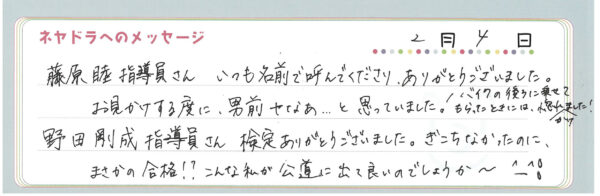 ネヤドラへのメッセージ
2月4日
藤原睦指導員さん いつも名前で呼んでくださり、ありがとうございました。
お見かけする度に、男前やなあ…と思っていました。
バイクの後ろに乗せて
もらったときには、惚れました!
がけ
野田剛成指導員さん 検定ありがとうございました。ぎこちなかったのに、
まさかの合格!? こんな私が公道に出て良いのでしょうか〜 ^_^!